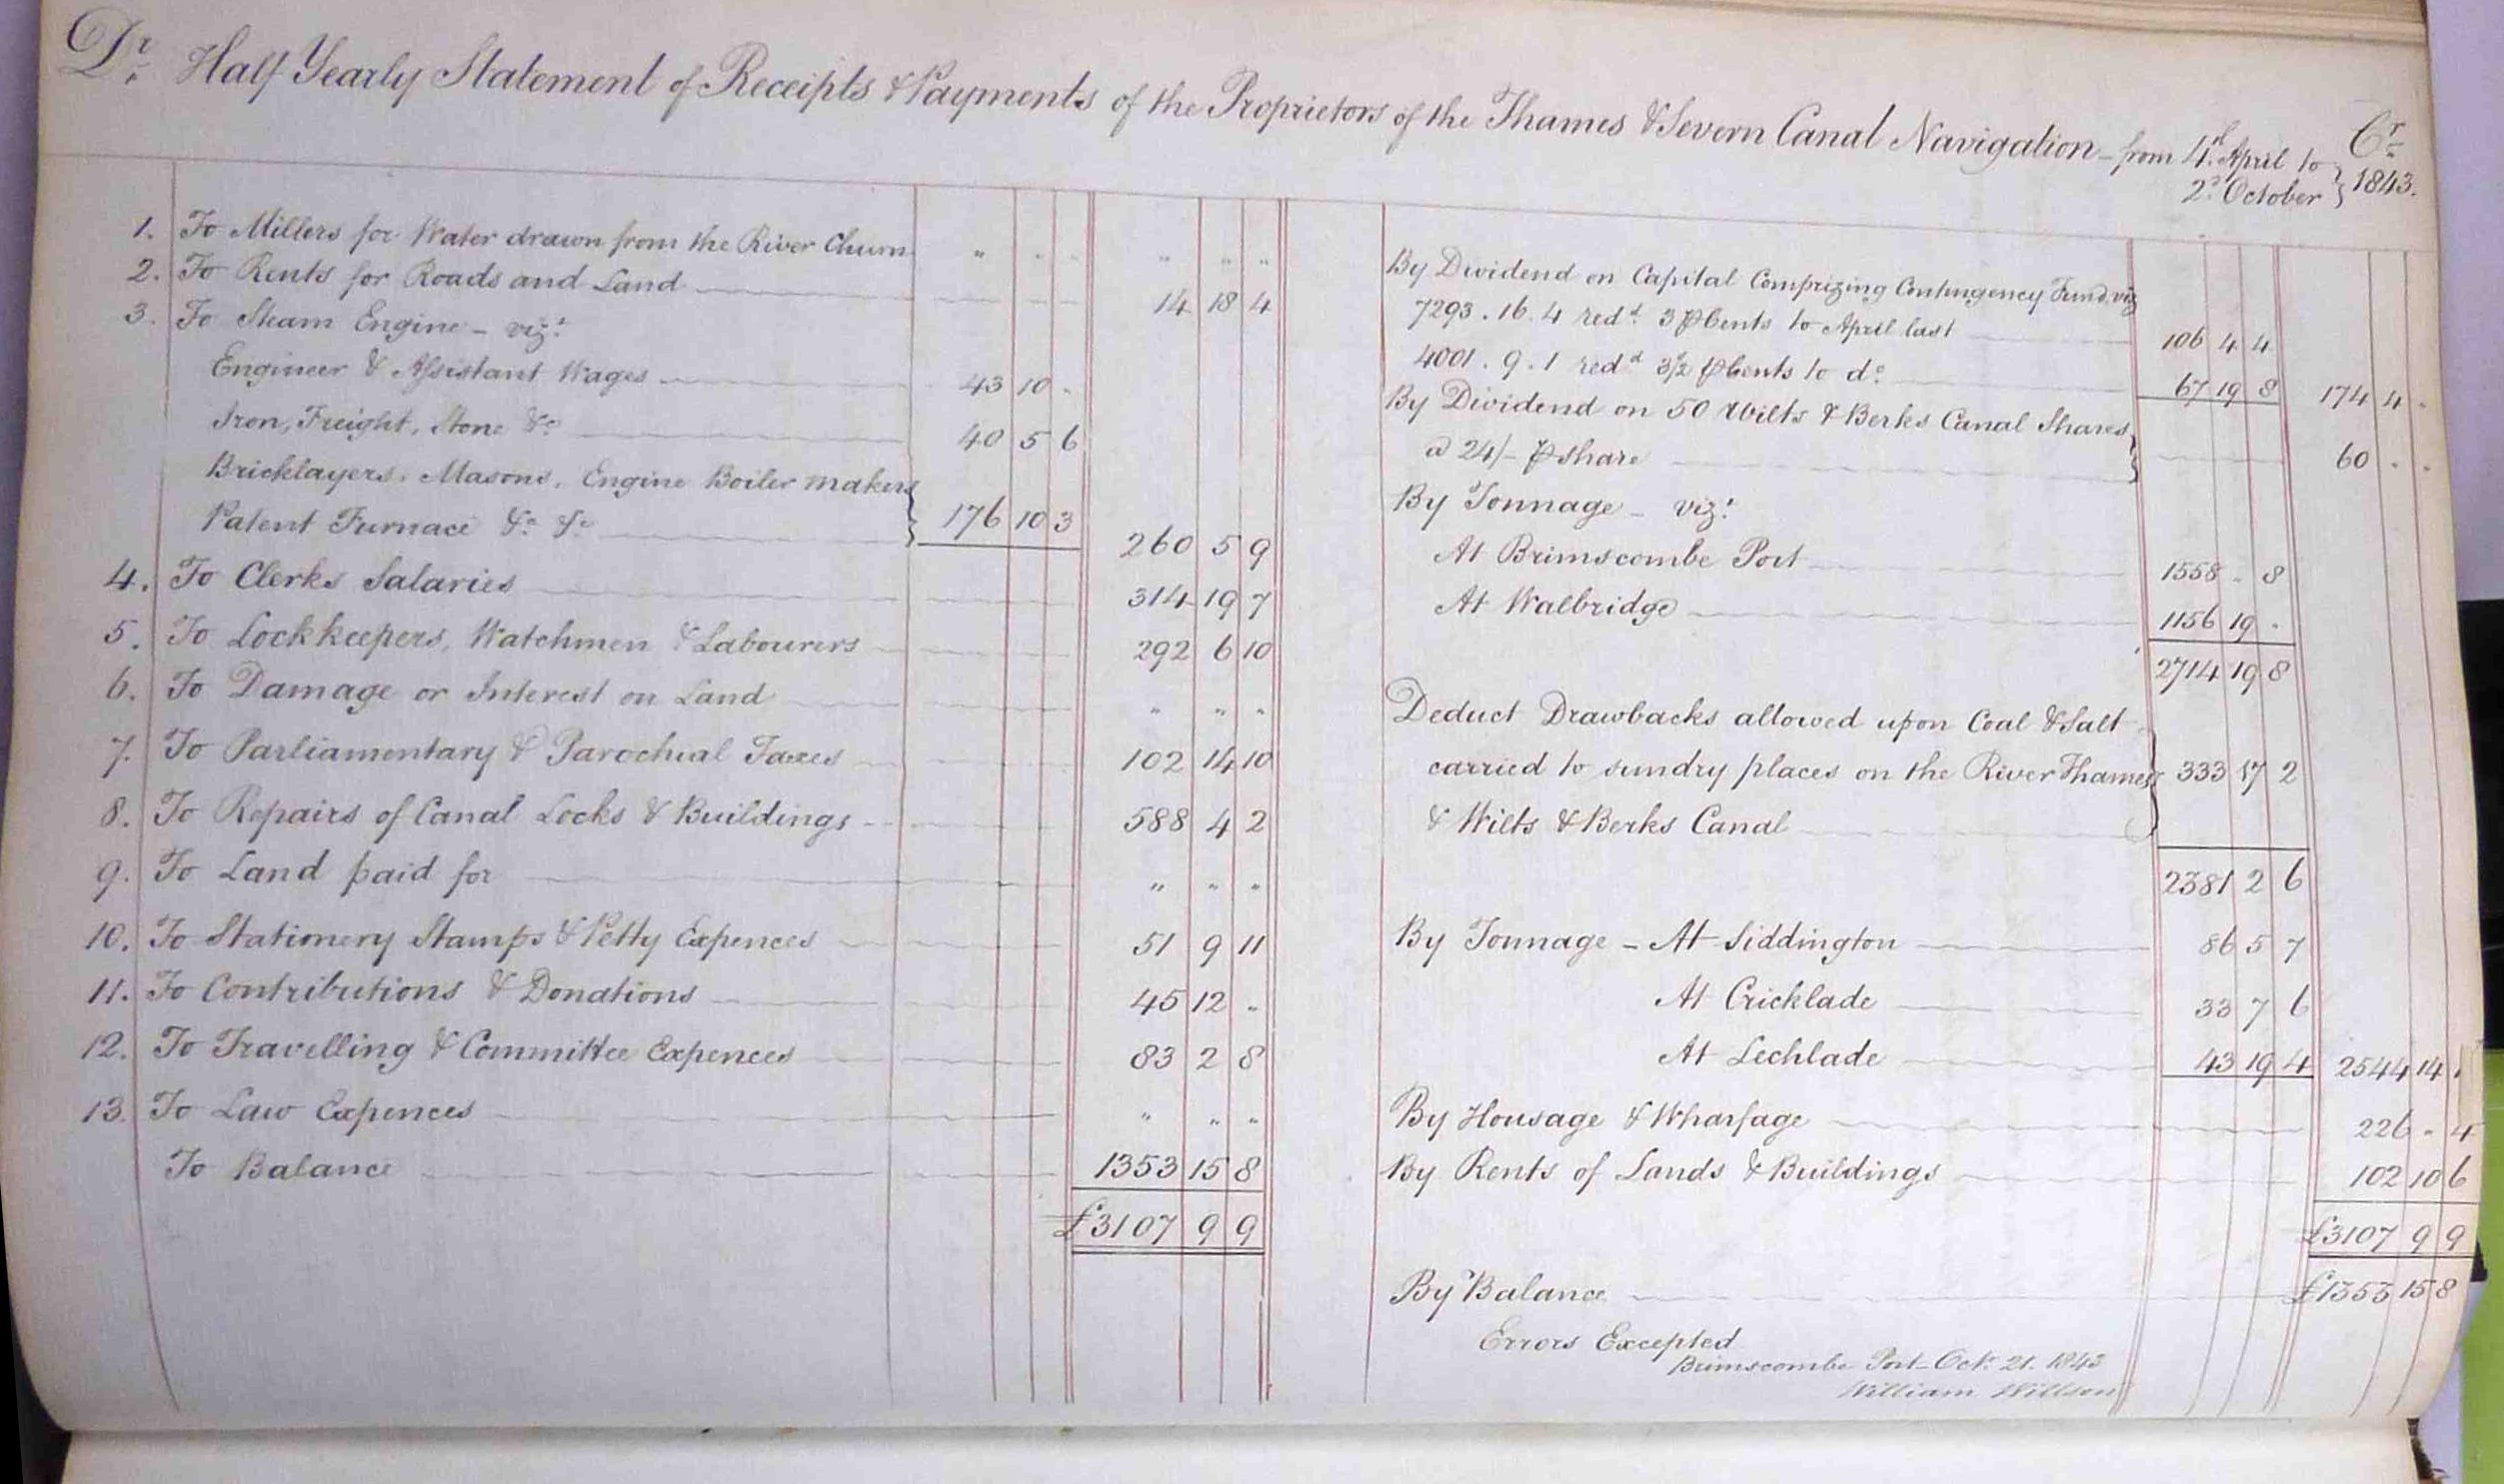 Dr. Half Yearly Statement of Receipts & Payments of the Proprietors of the Thames & Severn Canal Navigation – from 4th April to 2d October } 1843. Cr.
1. To Millers for Water drawn from the River Churn " " " " " "
2. To Rents for Roads and Land 14 18 4
3. To Steam Engine – vizt.
Engineer & Assistant Wages 43 10 -
Iron, Freight, Stone &c 40 5 6
Bricklayers, Masons, Engine Boiler makers
Patent Furnace &c. &c } 176 10 3 260 5 9
4. To Clerks Salaries 314 19 7
5. To Lockkeepers, Watchmen & Labourers 292 6 10
6. To Damage or Interest on Land " " "
7. To Parliamentary & Parochial Taxes 102 14 10
8. To Repairs of Canal Locks & Buildings 588 4 2
9. To Land paid for " " "
10. To Stationery Stamps & Petty Expences 51 9 11
11. To Contributions & Donations 45 12 -
12. To Travelling & Committee Expences 83 2 8
13. To Law Expences " " "
To Balance 1353 15 8
£3107 9 9
By Dividend on Capital Comprizing Contingency Fund. viz
7293. 16. 4 redd. 3 ⅌ Cents to April last 106 4 4
4001. 9. 1 redd 3½ ⅌ Cents to do. 67 19 8 174 4 -
By Dividend on 50 Wilts & Berks Canal Shares
a 24/- ⅌ share } 60 - -
By Tonnage – vizt.
At Brimscombe Port 1558 - 8
At Walbridge 1156 19 -
2714 19 8
Deduct Drawbacks allowed upon Coal & Salt
carried to sundry places on the River Thames } 333 17 2
& Wilts & Berks Canal
2381 2 6
By Tonnage – At Siddington 86 5 7
At Cricklade 33 7 6
At Lechlade 43 19 4 2544 14
By Housage & Wharfage 226 - 4
By Rents of Lands & Buildings 102 10 6
£3107 9 9
By Balance £1353 15 8
Errors Excepted
Brimscombe Port – Oct. 21. 1843
William Willson